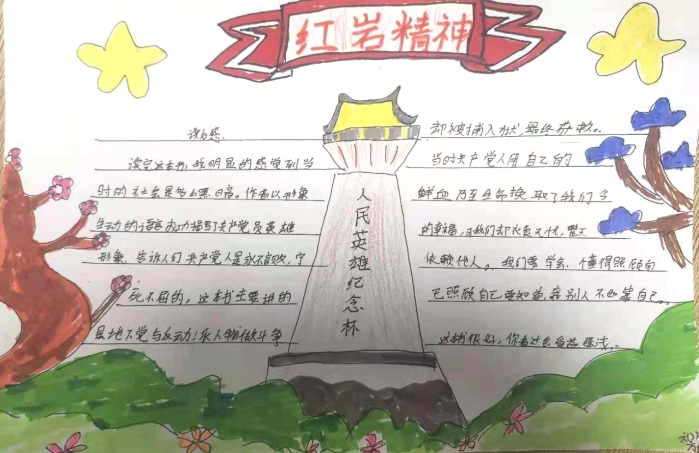 红岩精神
读后感
读完这本书,我明显的感觉到当
时的社会是多么黑暗。作者以形象
生动的语言成功描写了共产党员英雄
形象,告诉人们共产党人是永不言败,宁
死不屈的,这本书主要讲的
是地下党与反动派人物做斗争
人民英雄纪念杯
却被捕入狱,最终获救。
当时共产党人用自己的
鲜血乃至生命换取了我们今
的幸福,我们却衣食无忧,整天
依赖他人。我们要学会懂得照顾自
己照顾自己要知道靠别人不如靠自己。
这书很好,你看过会受益匪浅。